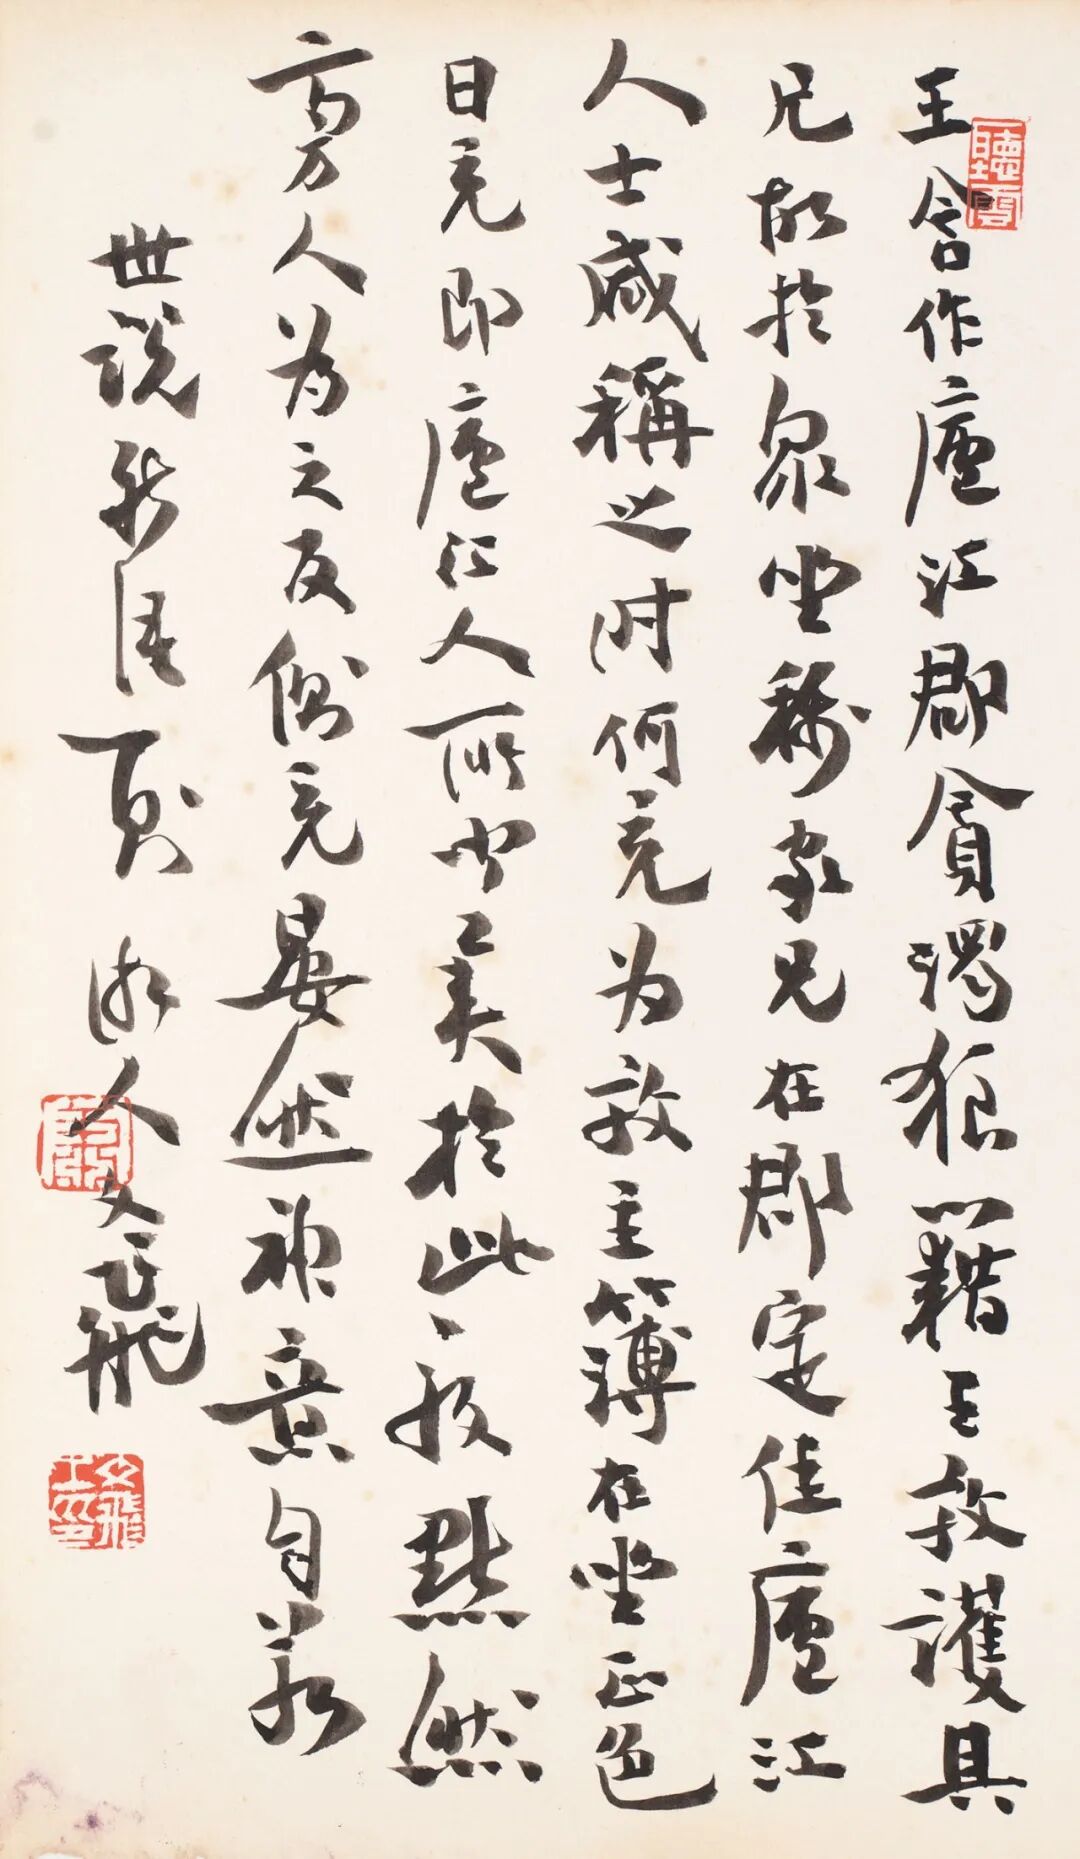 王含作廬江郡貪濁狼籍王敦護其
兄故於眾坐稱家兄在郡定佳廬江
人士咸稱之时何充为敦主簿在坐正色
曰充即廬江人所聞異於此敦默然
旁人为之反側充晏然神意自若
世說新語一則 人